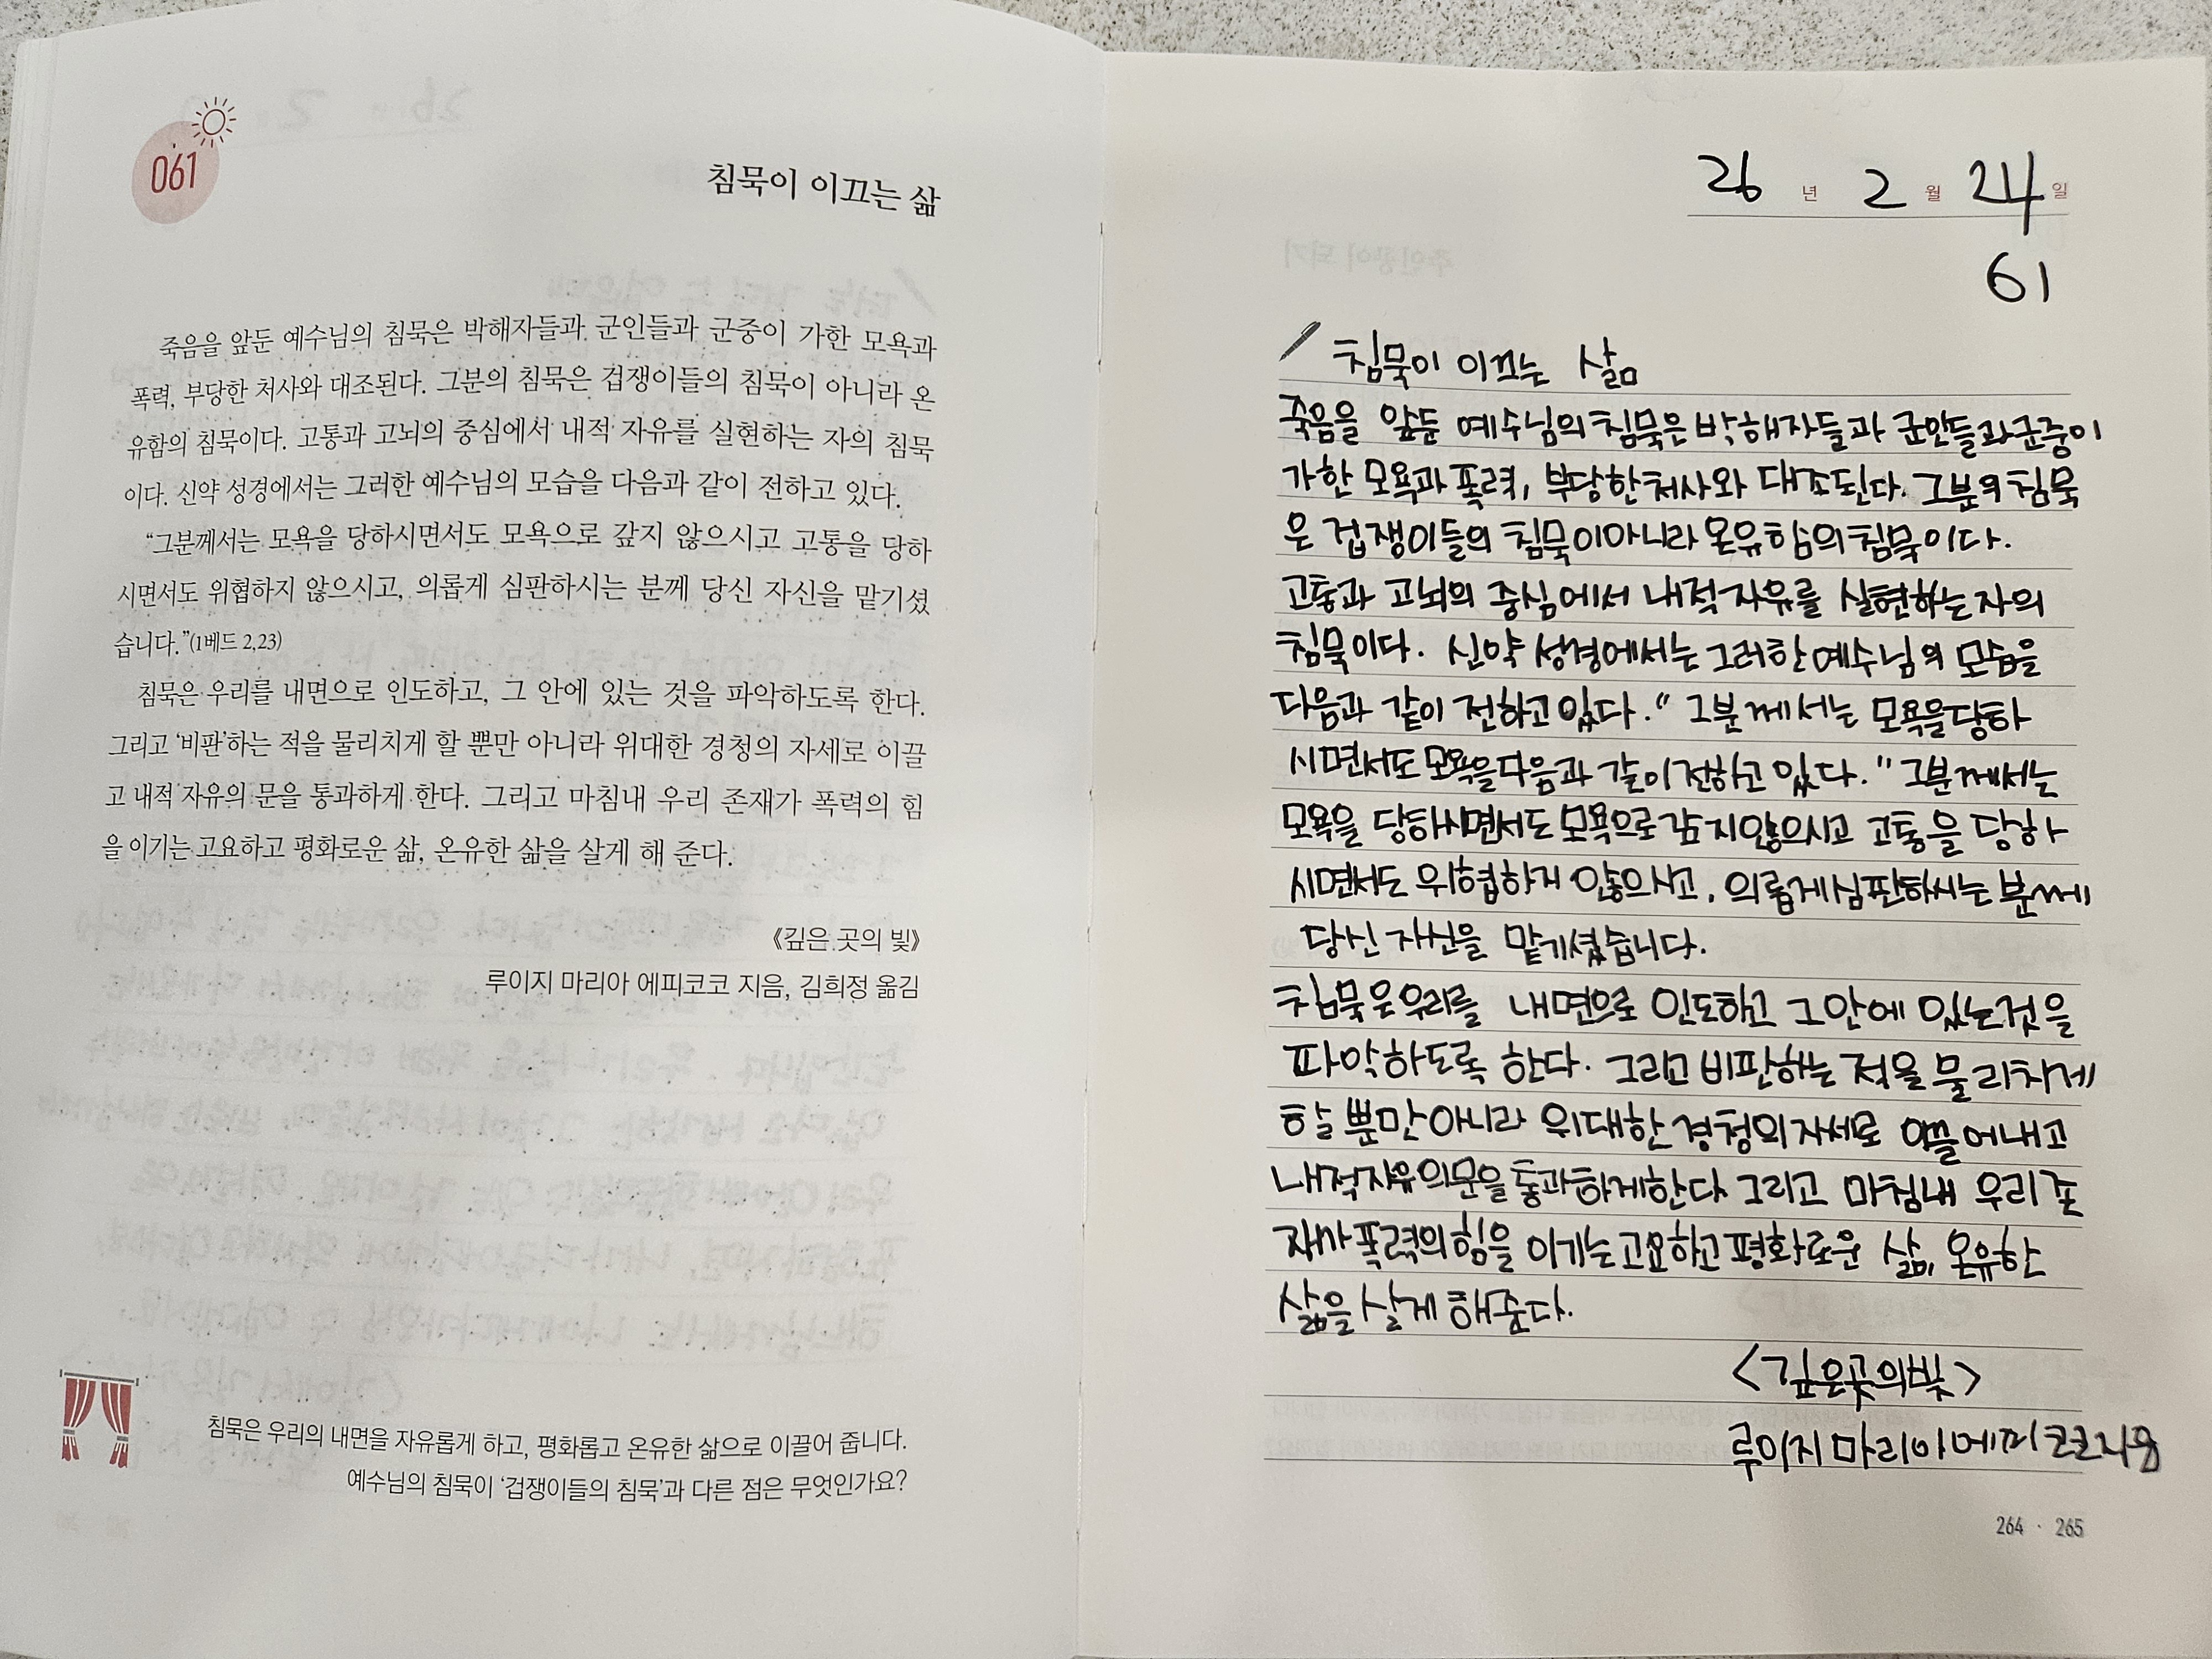 061
침묵이 이끄는 삶
죽음을 앞둔 예수님의 침묵은 박해자들과 군인들과 군중이 가한 모욕과
폭력, 부당한 처사와 대조된다. 그분의 침묵은 겁쟁이들의 침묵이 아니라 온
유함의 침묵이다. 고통과 고뇌의 중심에서 내적 자유를 실현하는 자의 침묵
이다. 신약 성경에서는 그러한 예수님의 모습을 다음과 같이 전하고 있다.
“그분께서는 모욕을 당하시면서도 모욕으로 갚지 않으시고 고통을 당하
시면서도 위협하지 않으시고, 의롭게 심판하시는 분께 당신 자신을 맡기셨
습니다.”(1베드 2,23)
침묵은 우리를 내면으로 인도하고, 그 안에 있는 것을 파악하도록 한다.
그리고 ‘비판’하는 적을 물리치게 할 뿐만 아니라 위대한 경청의 자세로 이끌
고 내적 자유의 문을 통과하게 한다. 그리고 마침내 우리 존재가 폭력의 힘
을 이기는 고요하고 평화로운 삶, 온유한 삶을 살게 해 준다.
《깊은 곳의 빛》
루이지 마리아 에피코코 지음, 김희정 옮김
침묵은 우리의 내면을 자유롭게 하고, 평화롭고 온유한 삶으로 이끌어 줍니다.
예수님의 침묵이 ‘겁쟁이들의 침묵’과 다른 점은 무엇인가요?
26 년 2 월 24 일
61
침묵이 이끄는 삶
죽음을 앞둔 예수님의 침묵은 박해자들과 군인들과 군중이
가한 모욕과 폭력, 부당한 처사와 대조된다. 그분의 침묵
은 겁쟁이들의 침묵이 아니라 온유함의 침묵이다.
고통과 고뇌의 중심에서 내적 자유를 실현하는 자의
침묵이다. 신약 성경에서는 그러한 예수님의 모습을
다음과 같이 전하고 있다. “그분께서는 모욕을 당하
시면서도 모욕을 다음과 같이 전하고 있다. "그분께서는
모욕을 당하시면서도 모욕으로 갚지 않으시고 고통을 당하
시면서도 위협하지 않으시고, 의롭게 심판하시는 분께
당신 자신을 맡기셨습니다.
침묵은 우리를 내면으로 인도하고 그 안에 있는 것을
파악하도록 한다. 그리고 비판하는 적을 물리치게
할 뿐만 아니라 위대한 경청의 자세로 이끌어내고
내적 자유의 문을 통과하게 한다 그리고 마침내 우리 존
재가 폭력의 힘을 이기는 고요하고 평화로운 삶, 온유한
삶을 살게 해준다.
<깊은 곳의 빛>
루이지 마리아 에피코코 지음
264 · 265